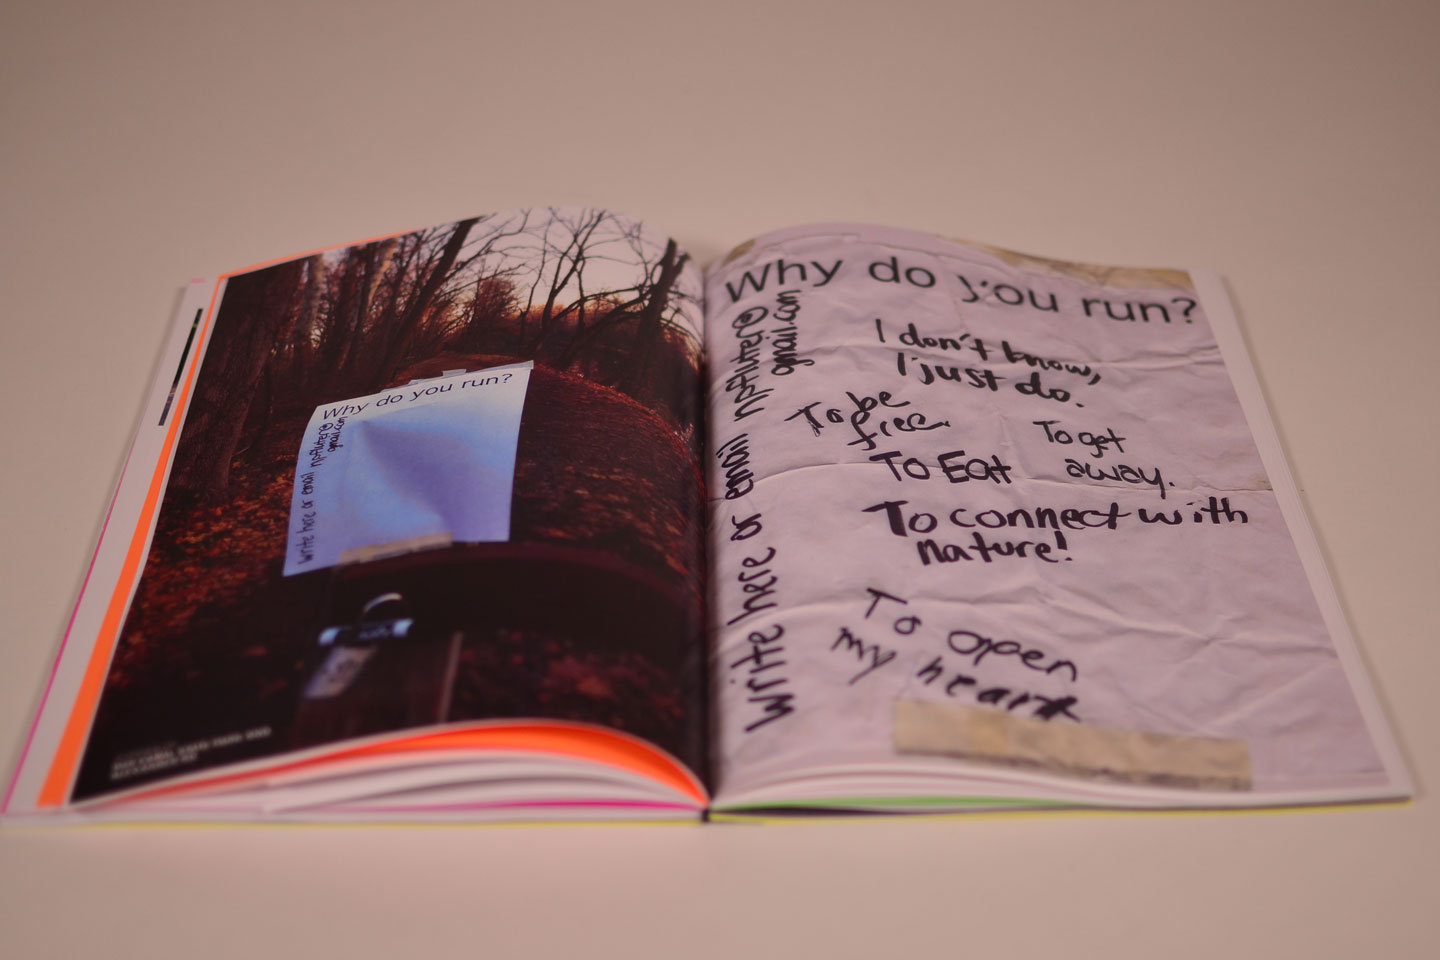 Why do you run?
write here or email npfluter@
gmail.com
Why do you run?
write here or email npfluter@
gmail.com
I don't know,
I just do.
To be
free.
To get
away.
To Eat
To connect with
nature!
To open
my heart